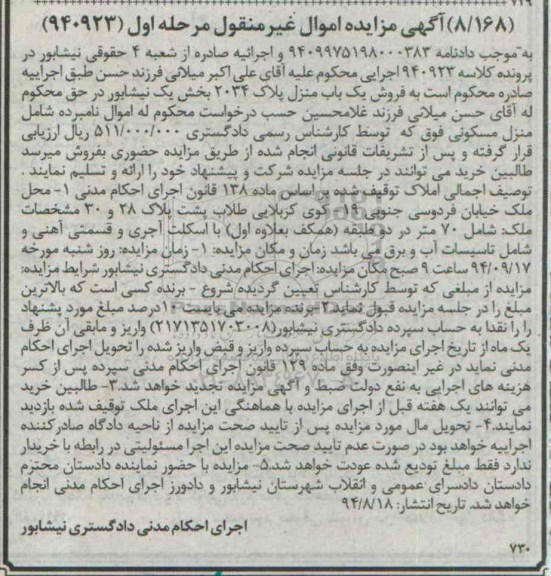 (۸/۱۶۸) آگهی مزایده اموال غیرمنقول مرحله اول (۹۴۰۹۲۳)
به موجب دادنامه ۹۴۰۹۹۷۵۱۹۸۰۰۰۳۸۳ و اجرائیه صادره از شعبه ۴ حقوقی نیشابور در
پرونده کلاسه ۹۴۰۹۲۳ اجرایی محکوم علیه آقای علی اکبر میلانی فرزند حسن طبق اجراییه
صادره محکوم است به فروش یک باب منزل پلاک ۲۰۳۴ بخش یک نیشابور در حق محکوم
له آقای حسن میلانی فرزند غلامحسین حسب درخواست محکوم له اموال نامبرده شامل
منزل مسکونی فوق که توسط کارشناس رسمی دادگستری ۵۱۱/۰۰۰/۰۰۰ ریال ارزیابی
قرار گرفته و پس از تشریفات قانونی انجام شده از طریق مزایده حضوری بفروش میرسد
طالبین خرید می توانند در جلسه مزایده شرکت و پیشنهاد خود را ارائه و تسلیم نمایند .
توصیف اجمالی املاک توقیف شده بر اساس ماده ۱۳۸ قانون اجرای احکام مدنی ۱- محل
ملک خیابان فردوسی جنوبی ۱۹- کوی کربلایی طلاب پشت پلاک ۲۸ و ۳۰ مشخصات
ملک: شامل ۷۰ متر در دو طبقه (همکف بعلاوه اول) با اسکلت آجری و قسمتی آهنی و
شامل تاسیسات آب و برق می باشد زمان و مکان مزایده: ۱- زمان مزایده: روز شنبه مورخه
۹۴/۰۹/۱۷ ساعت ۹ صبح مکان مزایده: اجرای احکام مدنی دادگستری نیشابور شرایط مزایده:
مزایده از مبلغی که توسط کارشناس تعیین گردیده شروع - برنده کسی است که بالاترین
مبلغ را در جلسه مزایده قبول نماید ۲- برنده مزایده می بایست ۱۰ درصد مبلغ مورد پشنهاد
را نقدا به حساب سپرده دادگستری نیشابور (۲۱۷۱۳۵۱۷۰۲۰۰۸) واریز و مابقی آن ظرف
یک ماه از تاریخ اجرای مزایده به حساب سپرده واریز و قبض واریز شده را تحویل اجرای احکام
مدنی نماید در غیر اینصورت وفق ماده ۱۲۹ قانون اجرای احکام مدنی سپرده پس از کسر
هزینه های اجرایی به نفع دولت ضبط و آگهی مزایده تجدید خواهد شد. ۳- طالبین خرید
می توانند یک هفته قبل از اجرای مزایده با هماهنگی این اجرای ملک توقیف شده بازدید
نمایند. ۴- تحویل مال مورد مزایده پس از تایید صحت مزایده از ناحیه دادگاه صادرکننده
اجراییه خواهد بود در صورت عدم تایید صحت مزایده این اجرا مسئولیتی در رابطه با خریدار
ندارد فقط مبلغ تودیع شده عودت خواهد شد. ۵- مزایده با حضور نماینده دادستان محترم
دادستان دادسرای عمومی و انقلاب شهرستان نیشابور و دادورز اجرای احکام مدنی انجام
خواهد شد. تاریخ انتشار: ۹۴/۸/۱۸
اجرای احکام مدنی دادگستری نیشابور
۷۳۰